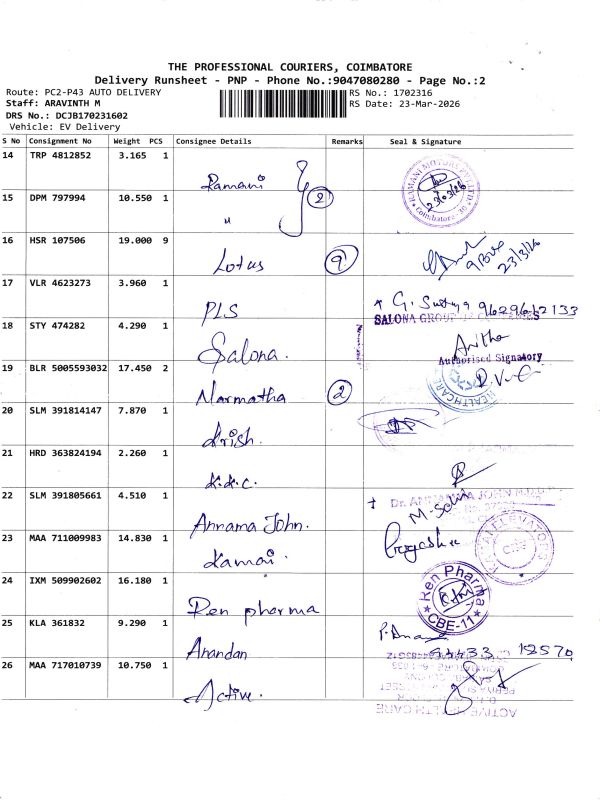 THE PROFESSIONAL COURIERS, COIMBATORE
Delivery Runsheet - PNP - Phone No.:9047080280 - Page No.:2
Route: PC2-P43 AUTO DELIVERY
RS No.: 1702316
Staff: ARAVINTH M
RS Date: 23-Mar-2026
DRS No.: DCJB170231602
Vehicle: EV Delivery
S No Consignment No Weight PCS Consignee Details Remarks Seal & Signature
14 TRP 4812852 3.165 1 Ramani
RAMANI MOTORS PVT LTD
23/03/26
Coimbatore
15 DPM 797994 10.550 1 " 2
16 HSR 107506 19.000 9 Lotus 9
9 Box
23/3/26
17 VLR 4623273 3.960 1 PLS
G. Surya 9629612133
SALONA GROUP
18 STY 474282 4.290 1 Salona.
Anitha
Authorised Signatory
19 BLR 5005593032 17.450 2 Narmatha 2
HEALTHCARE
20 SLM 391814147 7.870 1 Krish.
21 HRD 363824194 2.260 1 K.K.C.
22 SLM 391805661 4.510 1 Annama John.
23 MAA 711009983 14.830 1 Kamai.
ELEVATORS
24 IXM 509902602 16.180 1 Ren pharma
Ren Pharma
CBE-11
25 KLA 361832 9.290 1 Anandan
26 MAA 717010739 10.750 1 Active.
ACTIVE HEALTH CARE